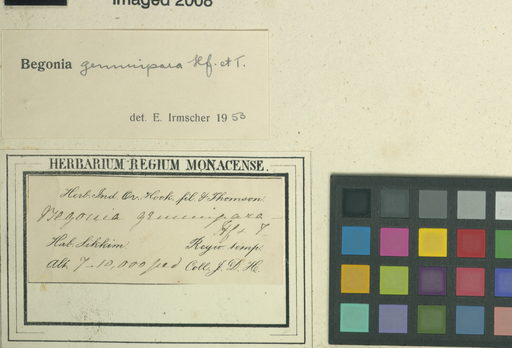 Imaged 2008
Begonia gemmipara Hf. et T.
det. E. Irmscher 1953
HERBARIUM REGIUM MONACENSE.
Herb. Ind. Or. Hook. fil. & Thomson.
Begonia gemmipara
Hf & T
Hab. Sikkim Regio temp.
Alt. 7-10,000 ped Coll. J. D. H.